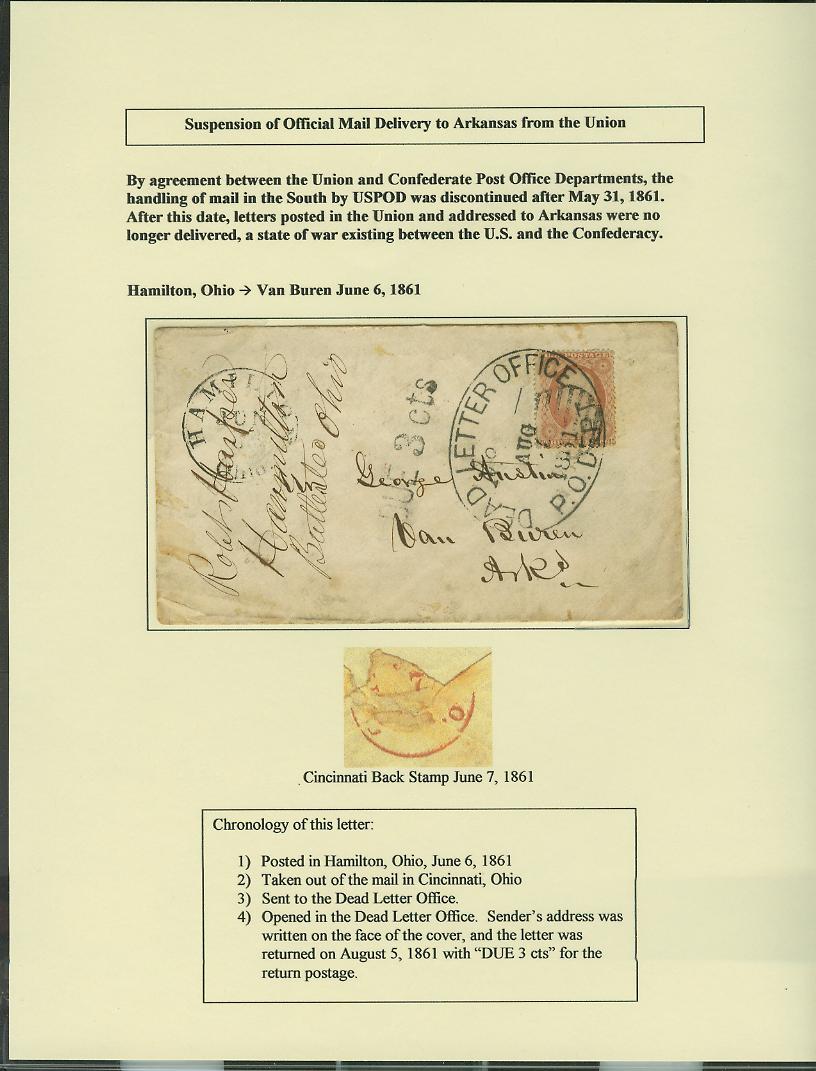 Suspension of Official Mail Delivery to Arkansas from the Union
By agreement between the Union and Confederate Post Office Departments, the
handling of mail in the South by USPOD was discontinued after May 31, 1861.
After this date, letters posted in the Union and addressed to Arkansas were no
longer delivered, a state of war existing between the U.S. and the Confederacy.
Hamilton, Ohio → Van Buren June 6, 1861
Robt Harper
Hamilton
Butler Co Ohio
DUE 3 cts
DEAD LETTER OFFICE
AUG
P.O.D.
George Austin
Van Buren
Arks
Cincinnati Back Stamp June 7, 1861
Chronology of this letter:
1) Posted in Hamilton, Ohio, June 6, 1861
2) Taken out of the mail in Cincinnati, Ohio
3) Sent to the Dead Letter Office.
4) Opened in the Dead Letter Office. Sender's address was
written on the face of the cover, and the letter was
returned on August 5, 1861 with “DUE 3 cts” for the
return postage.